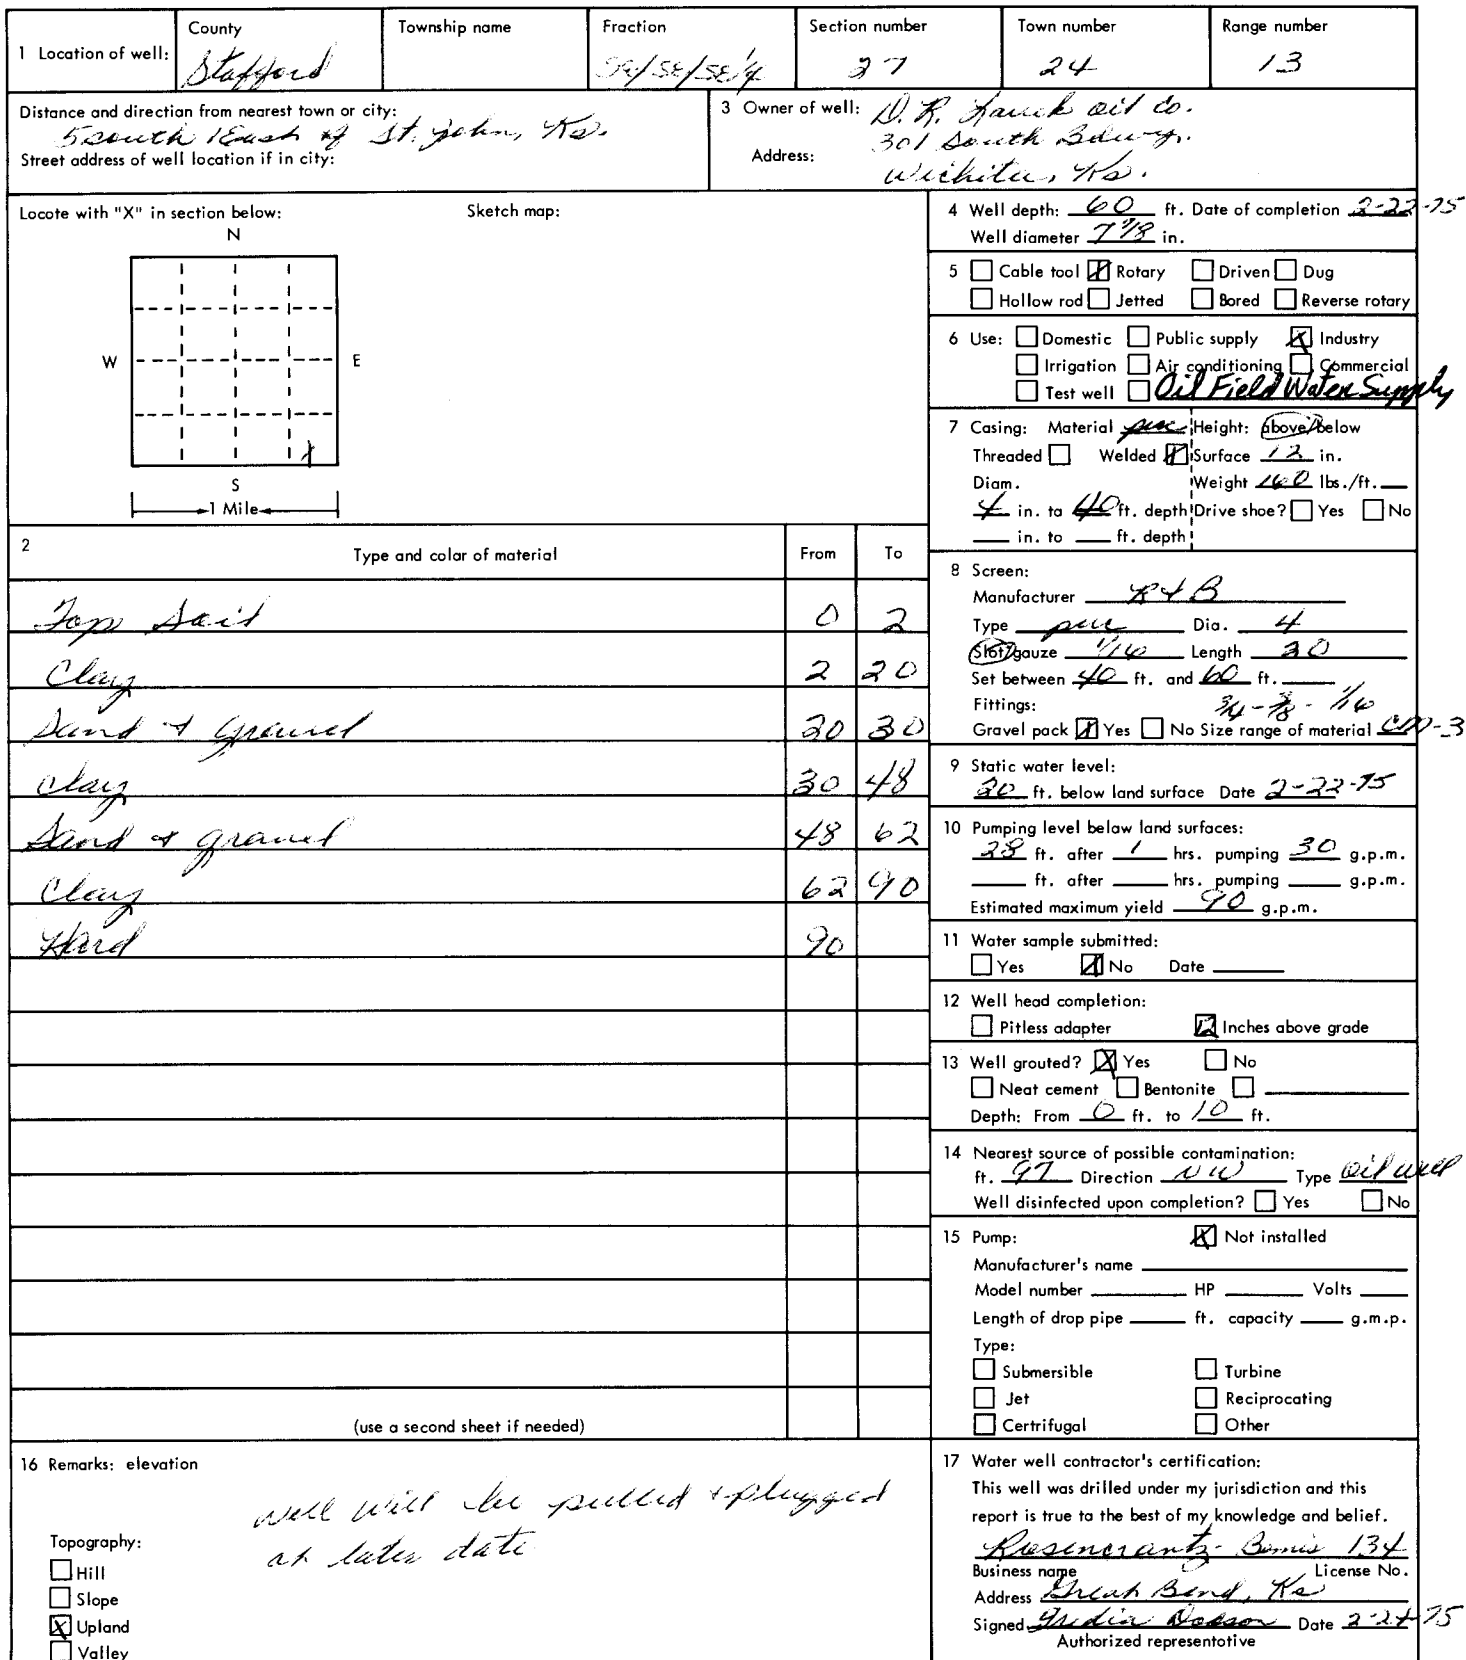 1 Location of well:
County
Stafford
Township name
Fraction
SE/SE/SE 1/4
Section number
27
Town number
24
Range number
13
Distance and direction from nearest town or city:
5 south 1 East of St. John, Ks.
Street address of well location if in city:
3 Owner of well: D. R. Lauck oil Co.
301 South Bdwy.
Address:
Wichita, Ks.
Locote with "X" in section below:
Sketch map:
N
W E
X
S
1 Mile
4 Well depth: 60 ft. Date of completion 2-22-75
Well diameter 7 7/8 in.
5 Cable tool X Rotary Driven Dug
Hollow rod Jetted Bored Reverse rotary
6 Use: Domestic Public supply X Industry
Irrigation Air conditioning Commercial
Test well Oil Field Water Supply
7 Casing: Material pvc Height: above/below
Threaded Welded X Surface 12 in.
Diam. Weight 160 lbs./ft.
4 in. to 40 ft. depth Drive shoe? Yes No
in. to ft. depth
2 Type and color of material From To
Top Soil 0 2
Clay 2 20
Sand + gravel 20 30
Clay 30 48
Sand + gravel 48 62
Clay 62 90
Hard 90
(use a second sheet if needed)
8 Screen:
Manufacturer R & B
Type pvc Dia. 4
Slot/gauze 1/16 Length 20
Set between 40 ft. and 60 ft.
Fittings: 3/4 - 3/8 - 1/16
Gravel pack X Yes No Size range of material
9 Static water level:
20 ft. below land surface Date 2-22-75
10 Pumping level below land surfaces:
28 ft. after 1 hrs. pumping 30 g.p.m.
ft. after hrs. pumping g.p.m.
Estimated maximum yield 90 g.p.m.
11 Water sample submitted:
Yes X No Date
12 Well head completion:
Pitless adapter 12 Inches above grade
13 Well grouted? X Yes No
Neat cement Bentonite
Depth: From 0 ft. to 10 ft.
14 Nearest source of possible contamination:
ft. 97 Direction NW Type oil well
Well disinfected upon completion? Yes No
15 Pump: X Not installed
Manufacturer's name
Model number HP Volts
Length of drop pipe ft. capacity g.m.p.
Type:
Submersible Turbine
Jet Reciprocating
Certrifugal Other
16 Remarks: elevation
well will be pulled + plugged
at later date
Topography:
Hill
Slope
X Upland
Valley
17 Water well contractor's certification:
This well was drilled under my jurisdiction and this
report is true to the best of my knowledge and belief.
Rosencrantz-Bemis 134
Business name License No.
Address Great Bend, Ks
Signed Dodson Date 2-24-75
Authorized representotive